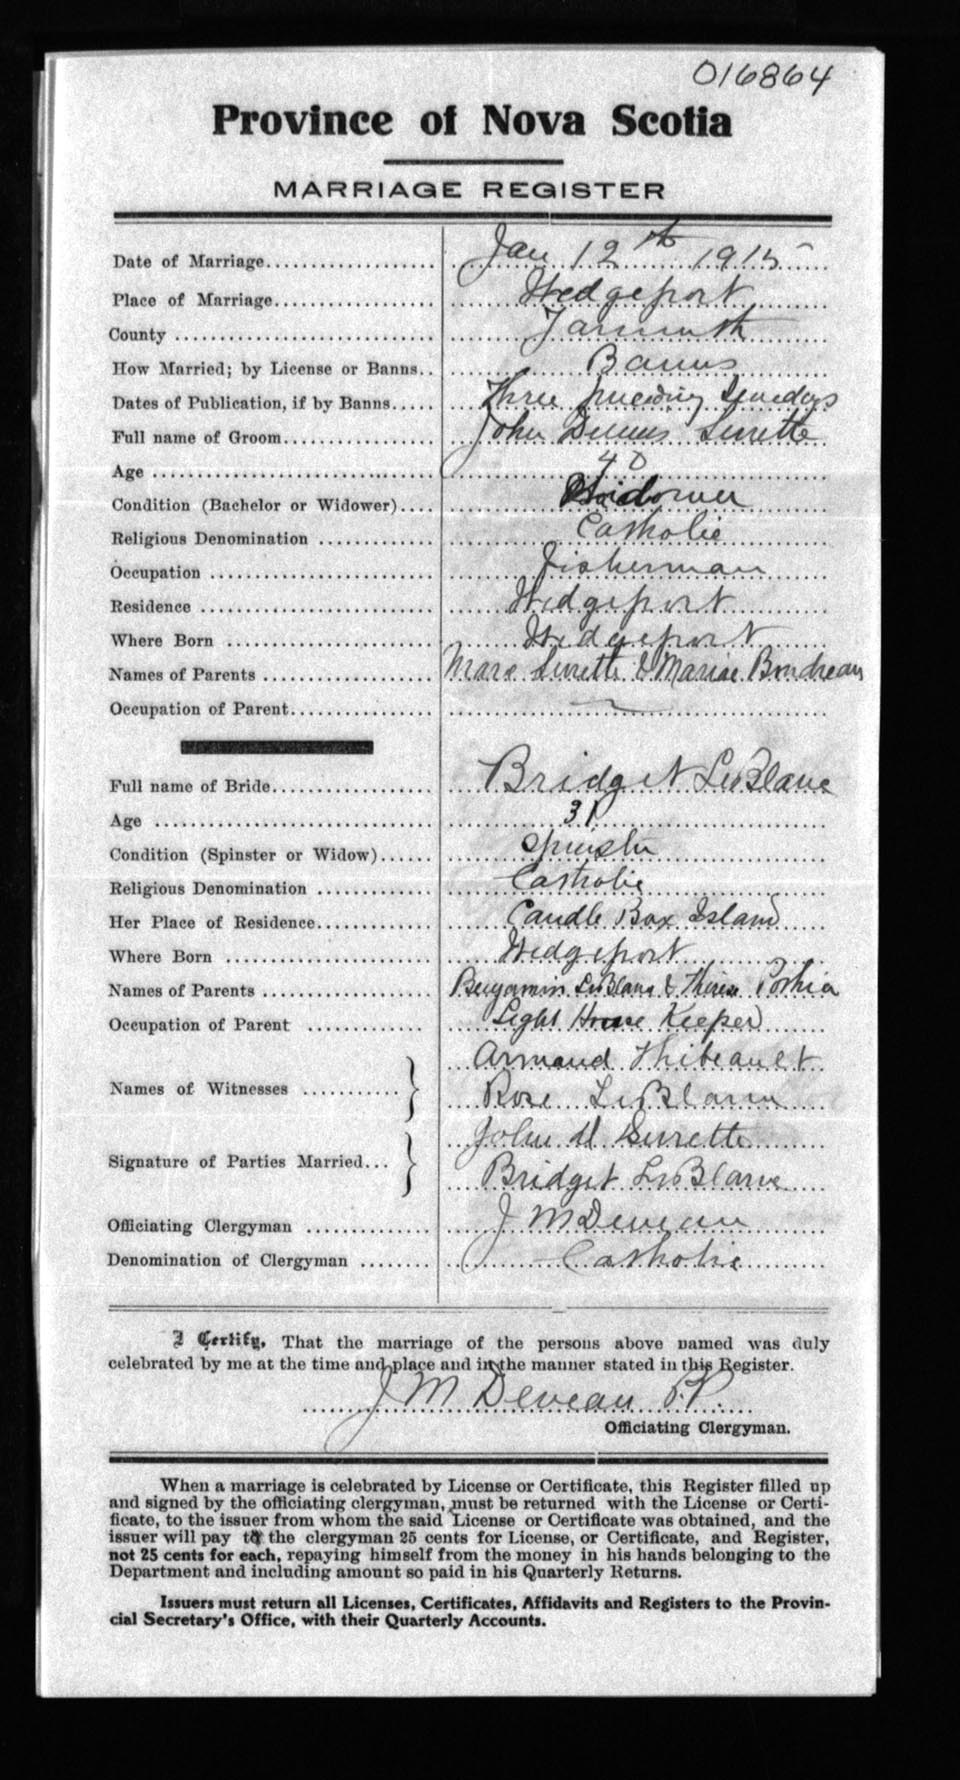 016864
Province of Nova Scotia
MARRIAGE REGISTER
Date of Marriage.................... Jan 12th 1915
Place of Marriage................... Wedgeport
County ............................. Yarmouth
How Married; by License or Banns.. Banns
Dates of Publication, if by Banns..... Three preceding Sundays
Full name of Groom.................. John Dennis Surette
Age ................................ 40
Condition (Bachelor or Widower).... Widower
Religious Denomination ............. Catholic
Occupation ......................... Fisherman
Residence .......................... Wedgeport
Where Born ......................... Wedgeport
Names of Parents .................... Marc Surette & Boudreau
Occupation of Parent.................
Full name of Bride................... Bridget LeBlanc
Age ................................ 31
Condition (Spinster or Widow)...... Spinster
Religious Denomination ............. Catholic
Her Place of Residence............. Candle Box Island
Where Born ......................... Wedgeport
Names of Parents .................... Benjamin LeBlanc &
Occupation of Parent ............... Light House Keeper
Names of Witnesses ........... } Armand Thibeault
Rose LeBlanc
Signature of Parties Married... } John D Surette
Bridget LeBlanc
Officiating Clergyman .............. J M Deveau
Denomination of Clergyman ........ Catholic
I Certify, That the marriage of the persons above named was duly
celebrated by me at the time and place and in the manner stated in this Register.
J M Deveau P.P.
Officiating Clergyman.
When a marriage is celebrated by License or Certificate, this Register filled up
and signed by the officiating clergyman, must be returned with the License or Certi-
ficate, to the issuer from whom the said License or Certificate was obtained, and the
issuer will pay to the clergyman 25 cents for License, or Certificate, and Register,
not 25 cents for each, repaying himself from the money in his hands belonging to the
Department and including amount so paid in his Quarterly Returns.
Issuers must return all Licenses, Certificates, Affidavits and Registers to the Provin-
cial Secretary's Office, with their Quarterly Accounts.